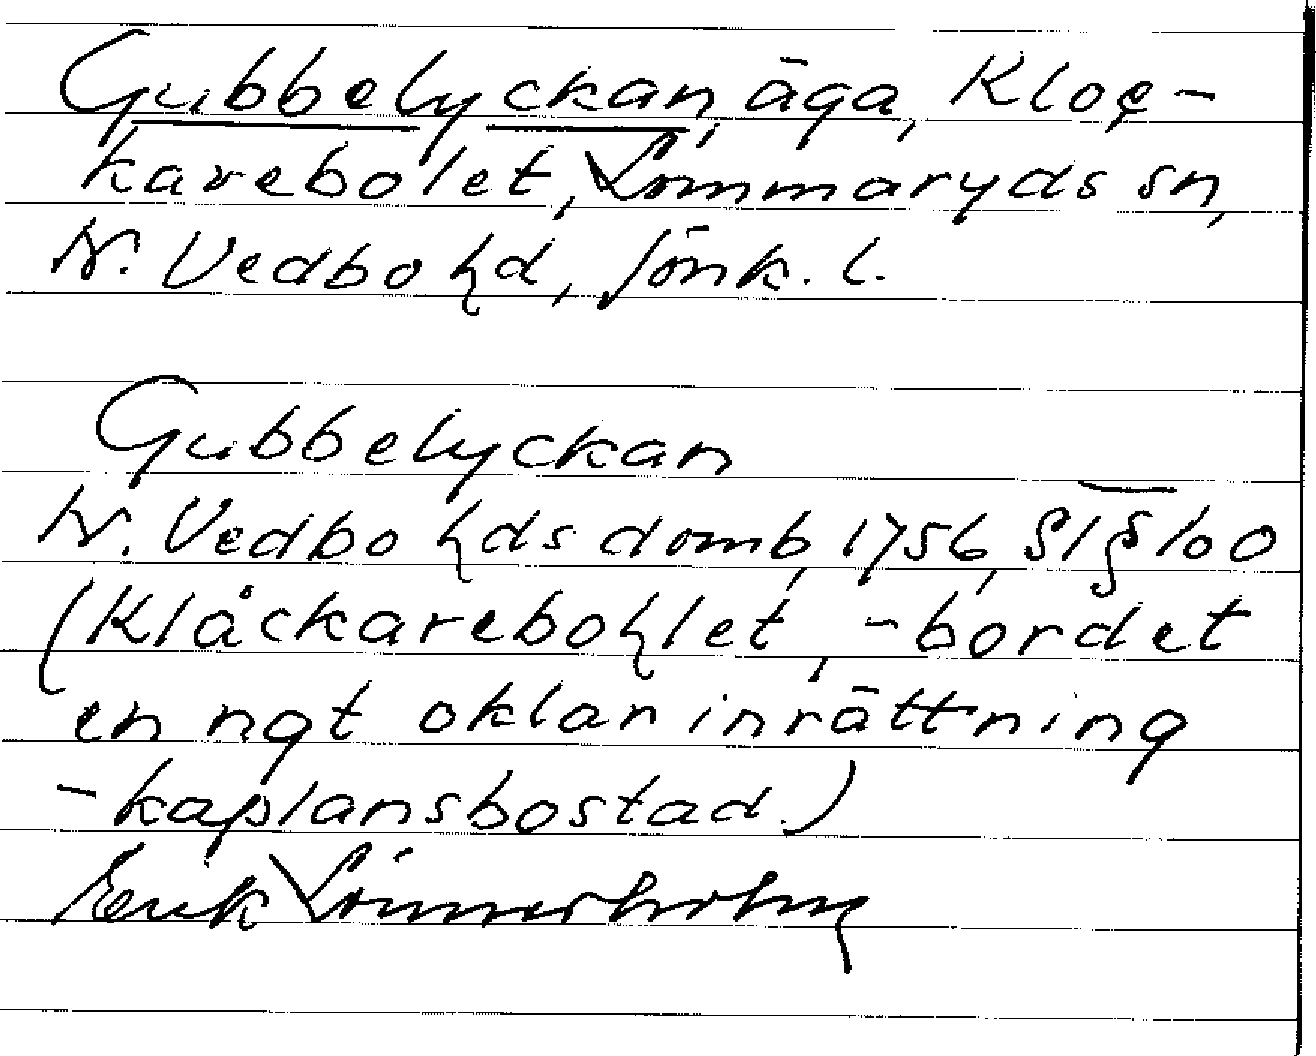 Gubbelyckan, äga, Kloc-
karebolet, Lommaryds sn,
N. Vedbo hd, Jönk. l.
Gubbelyckan
N. Vedbo hds domb, 1756, S1§100
(Klåckarebohlet, -bordet
en ngt oklar inrättning
- kaplansbostad.)
Erik Lönnerholm